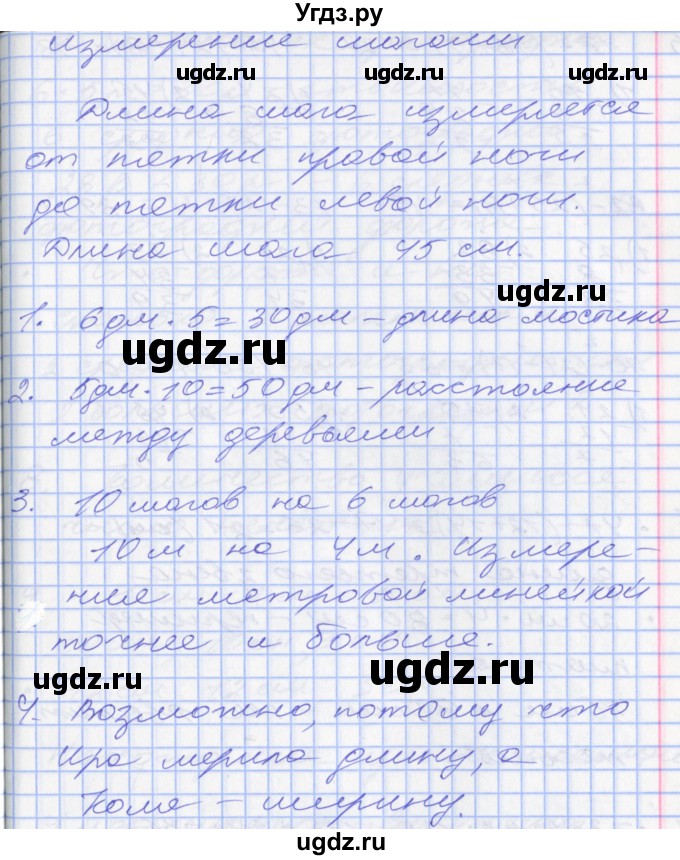 Угдз.ру
измерение шагами
ugdz.ru ugdz.ru
Длина шага измеряется
от пятки правой ноги
до пятки левой ноги.
Длина шага 45 см.
ugdz.ru
1. 6дм · 5 = 30дм – длина мостика
ugdz.ru
2. 5дм · 10 = 50дм – расстояние
между деревьями
3. 10 шагов на 6 шагов
10м на 4м. Измере-
ние метровой линейкой
точнее и больше.
ugdz.ru ugdz.ru
4. Возможно, потому что
Ира мерила длину, а
Коля – ширину.
ugdz.ru